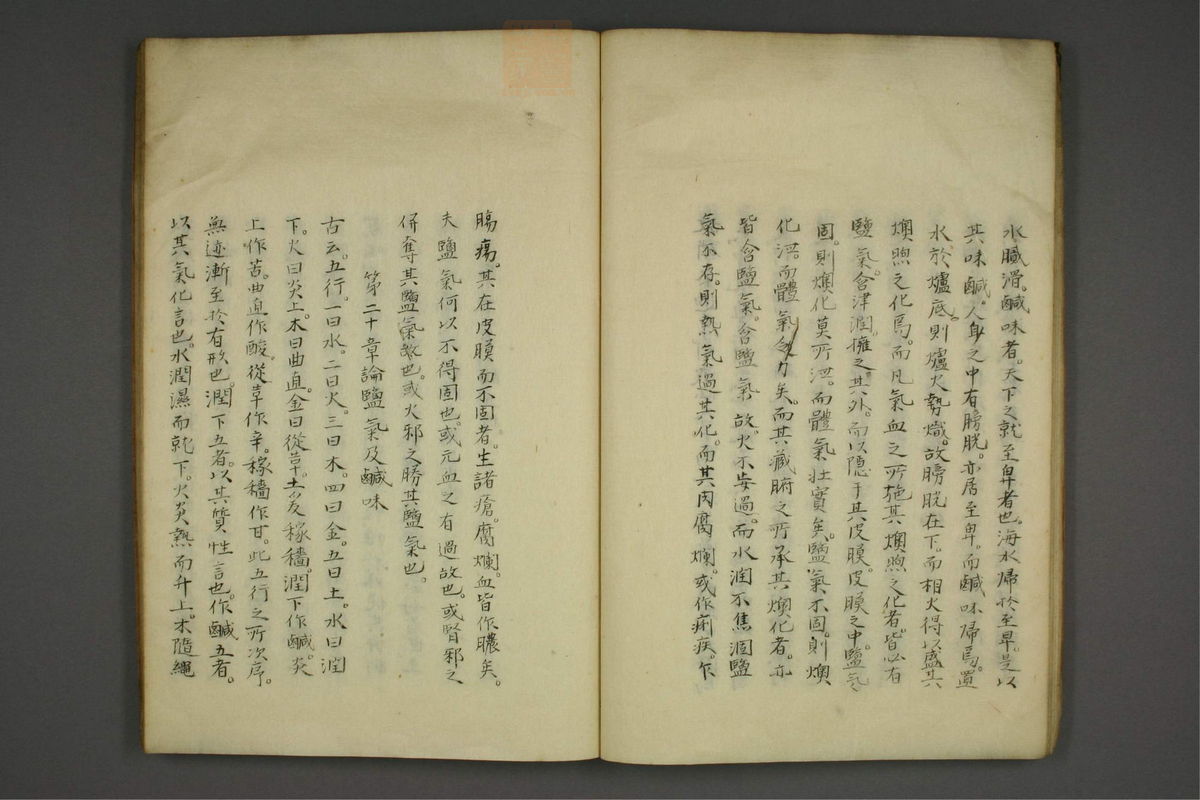 水臟滑。鹹味者。天下之就至卑者也。海水歸於至卑。是以
其味鹹。人身之中有膀胱。亦居至卑。而鹹味歸焉。置
水於爐底。則爐火勢熾。故膀胱在下。而相火得以盛其
燠煦之化焉。而凡氣血之所施其燠煦之化者。皆必有
鹽氣。含津潤。擁之其外。而以隱于其皮膜。皮膜之中。鹽氣
固。則燠化莫所泄。而體氣壯實矣。鹽氣不固。則燠
化泄。而體氣乏力矣。而其藏腑之所承其燠化者。亦
皆含鹽氣。含鹽氣。故火不妄過。而水潤不焦涸。鹽
氣不存。則熱氣過其化。而其肉腐爛。或作痢疾。乍
腸瘍。其在皮膜而不固者。生諸瘡。腐爛。血皆作膿矣。
夫鹽氣何以不得固也。或元血之有過故也。或腎邪之
併奪其鹽氣故也。或火邪之勝其鹽氣也。
第二十章論鹽氣及鹹味
古云。五行。一曰水。二曰火。三曰木。四曰金。五曰土。水曰潤
下。火曰炎上。木曰曲直。金曰從革。土爰稼穡。潤下作鹹。炎
上作苦。曲直作酸。從革作辛。稼穡作甘。此五行之所次序。
無迹漸至於有形也。潤下五者。以其質性言也。作鹹五者。
以其氣化言也。水潤濕而就下。火炎熱而升上。木隨繩